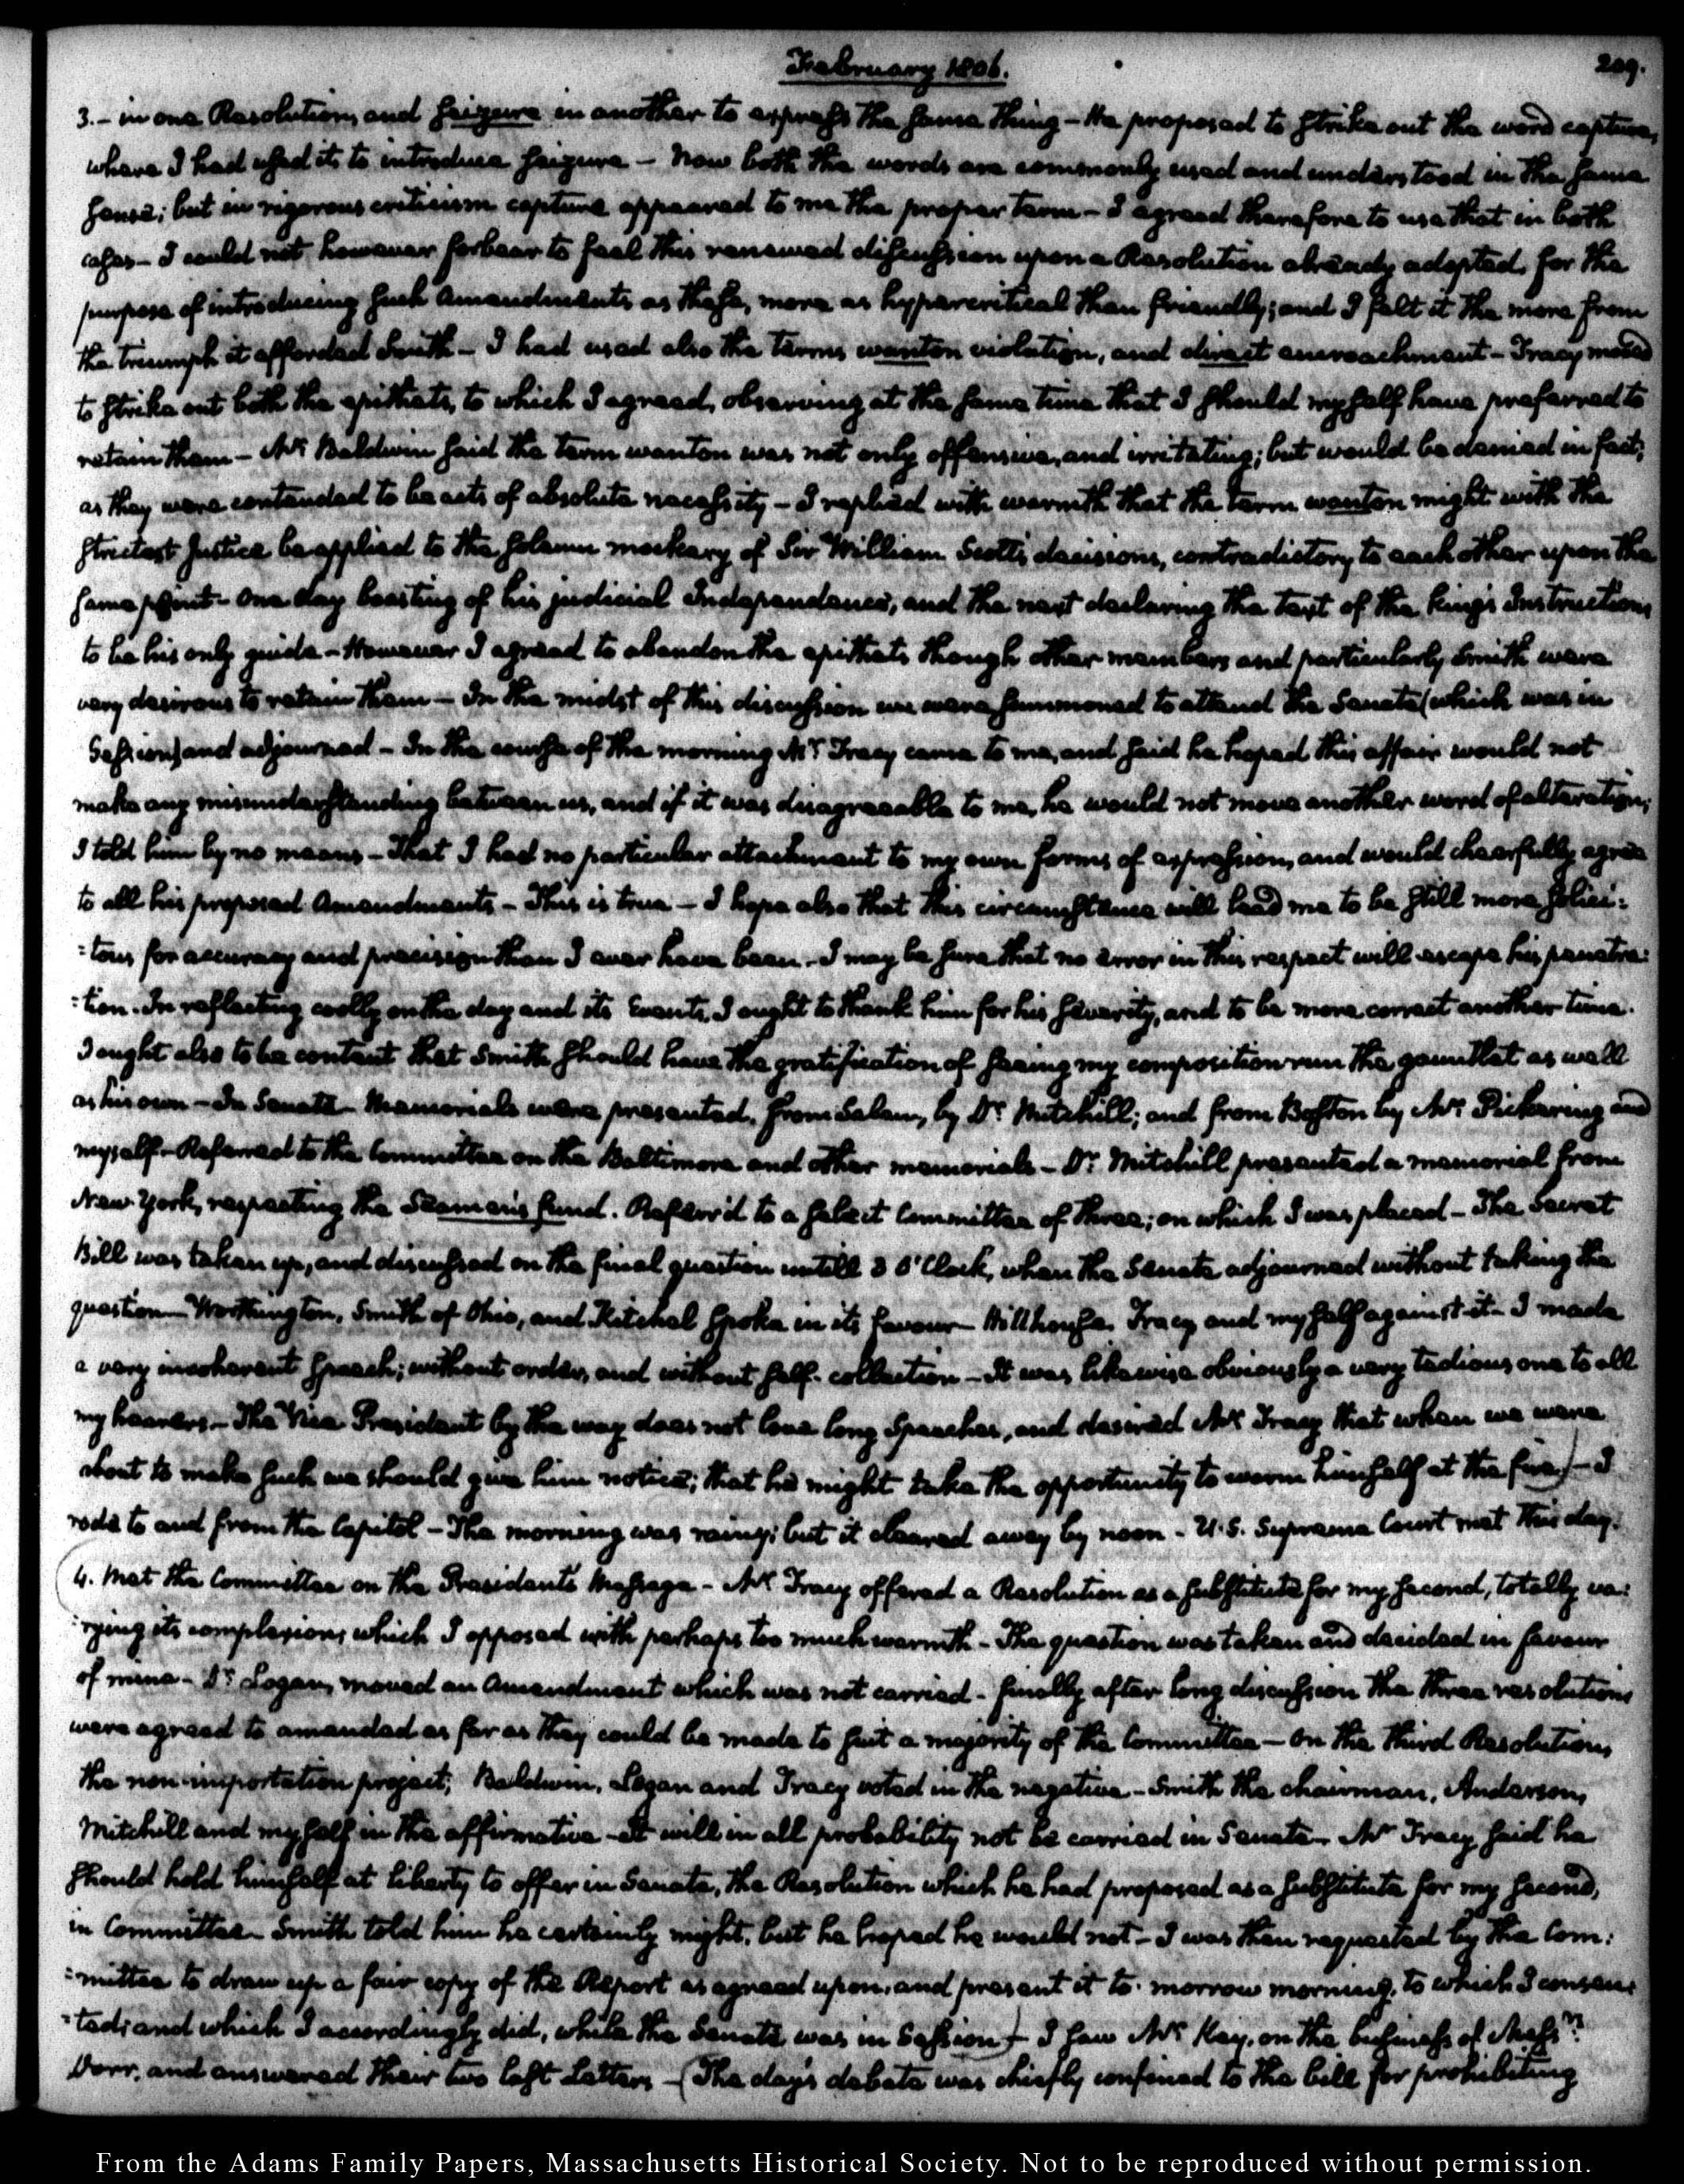 February 1806.
209.
3.- in one Resolution, and seizure in another to express the same thing - He proposed to strike out the word capture,
where I had used it, to introduce seizure - Now both the words are commonly used and understood in the same
sense; but in rigorous criticism capture appeared to me the proper term - I agreed therefore to use that in both
cases - I could not however forbear to feel this renewed discussion upon a Resolution already adopted, for the
purpose of introducing such Amendments as these, more as hypercritical than friendly; and I felt it the more from
the triumph it afforded Smith - I had used also the terms wanton violation, and direct encroachment - Tracy moved
to strike out both the epithets, to which I agreed, observing at the same time that I should myself have preferred to
retain them - Mr. Baldwin said the term wanton was not only offensive, and irritating; but would be denied in fact;
as they were contended to be acts of absolute necessity - I replied with warmth that the term wanton might with the
strictest Justice be applied to the solemn mockery of Sir William Scott's decisions, contradictory to each other upon the
same point - One day boasting of his judicial Independence, and the next declaring the text of the king's Instructions
to be his only guide - However I agreed to abandon the epithets though other members and particularly Smith were
very desirous to retain them - In the midst of this discussion we were summoned to attend the Senate (which was in
Session) and adjourned - In the course of the morning Mr. Tracy came to me, and said he hoped this affair would not
make any misunderstanding between us, and if it was disagreeable to me, he would not move another word of alteration;
I told him by no means - That I had no particular attachment to my own forms of expression, and would chearfully agree
to all his proposed Amendments - This is true - I hope also that this circumstance will lead me to be still more solici:
:tous for accuracy and precision than I ever have been - I may be sure that no error in this respect will escape his penetra:
:tion. In reflecting coolly on the day and its Events, I ought to thank him for his severity, and to be more correct another time.
I ought also to be content that Smith should have the gratification of seeing my composition run the gauntlet as well
as his own - In Senate - Memorials were presented, from Salem, by Dr. Mitchill; and from Boston by Mr. Pickering and
myself - Referred to the Committee on the Baltimore and other memorials - Dr. Mitchill presented a memorial from
New-York, respecting the Seamen's fund. Referr'd to a select Committee of three; on which I was placed - The Secret
Bill was taken up, and discussed on the final question untill 3 O'Clock, when the Senate adjourned without taking the
question - Worthington, Smith of Ohio, and Kitchel spoke in its favour - Hillhouse, Tracy and myself against it - I made
a very incoherent speech; without order, and without self-collection - It was likewise obviously a very tedious one to all
my hearers - The Vice President by the way does not love long Speeches, and desired Mr. Tracy that when we were
about to make such we should give him notice; that he might take the opportunity to warm himself at the fire) - I
rode to and from the Capitol - The morning was rainy; but it cleared away by noon - U.S. Supreme Court met this day.
4. Met the Committee on the President's Message - Mr. Tracy offered a Resolution as a substitute for my second, totally va:
:rying its complexion; which I opposed with perhaps too much warmth - The question was taken and decided in favour
of mine - Dr. Logan, moved an Amendment which was not carried - finally after long discussion the three resolutions
were agreed to amended as far as they could be made to suit a majority of the Committee - On the third Resolution,
the non-importation project; Baldwin, Logan and Tracy voted in the negative - Smith the chairman, Anderson,
Mitchill and myself in the affirmative - It will in all probability not be carried in Senate - Mr Tracy said he
should hold himself at liberty to offer in Senate, the Resolution which he had proposed as a substitute for my second,
in Committee - Smith told him he certainly might, but he hoped he would not - I was then requested by the Com:
:mittee to draw up a fair copy of the Report as agreed upon, and present it to-morrow morning, to which I consen:
:ted; and which I accordingly did, while the Senate was in Session) - I saw Mr. Key, on the business of Messrs.
Dorr, and answered their two last Letters - (The day's debate was chiefly confined to the bill for prohibiting
From the Adams Family Papers, Massachusetts Historical Society. Not to be reproduced without permission.